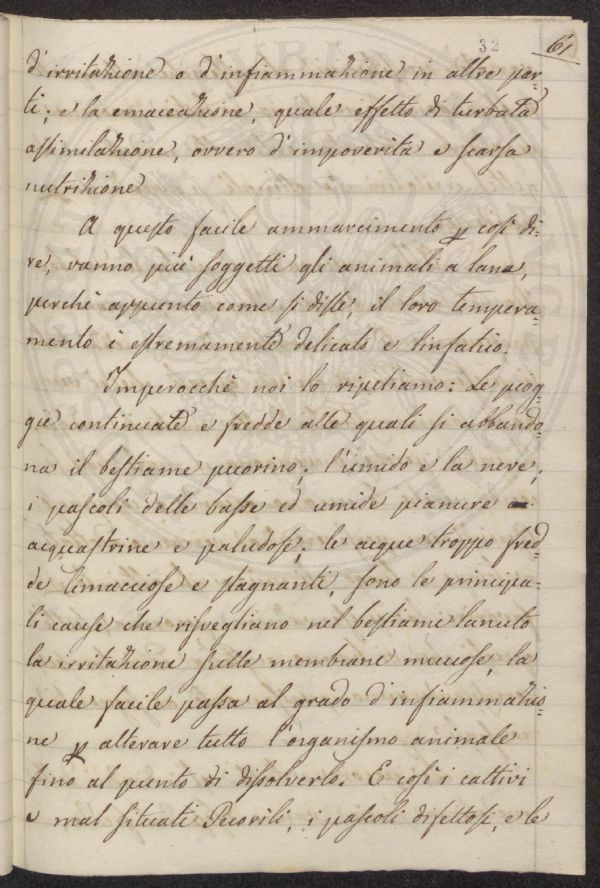 32
61
d'irritazione o d'infiammazione in altre par-
ti; e la emaceazione, quale effetto di turbata
assimilazione, ovvero d'impoverita e scarsa
nutrizione
A questo facile ammarcimento p così di-
re, vanno più soggetti gli animali a lana,
perchè appunto come si disse, il loro tempera-
mento è estremamente delicato e linfatico.
Imperocchè noi lo ripetiamo: Le piog-
gie continuate e fredde alle quali si abbando-
na il bestiame pecorino; l'umido e la neve;
i pascoli delle basse ed umide pianure
acquastrine e paludose; le acque troppo fred-
de limacciose e stagnanti, sono le principa-
li cause che risvegliano nel bestiame lanuto
la irritazione sulle membrane muccose, la
quale facile passa al grado d'infiammazio-
ne p alterare tutto l'organismo animale
fino al punto di dissolverlo. E così i cattivi
e mal situati Pecorili, i pascoli difettosi, e le